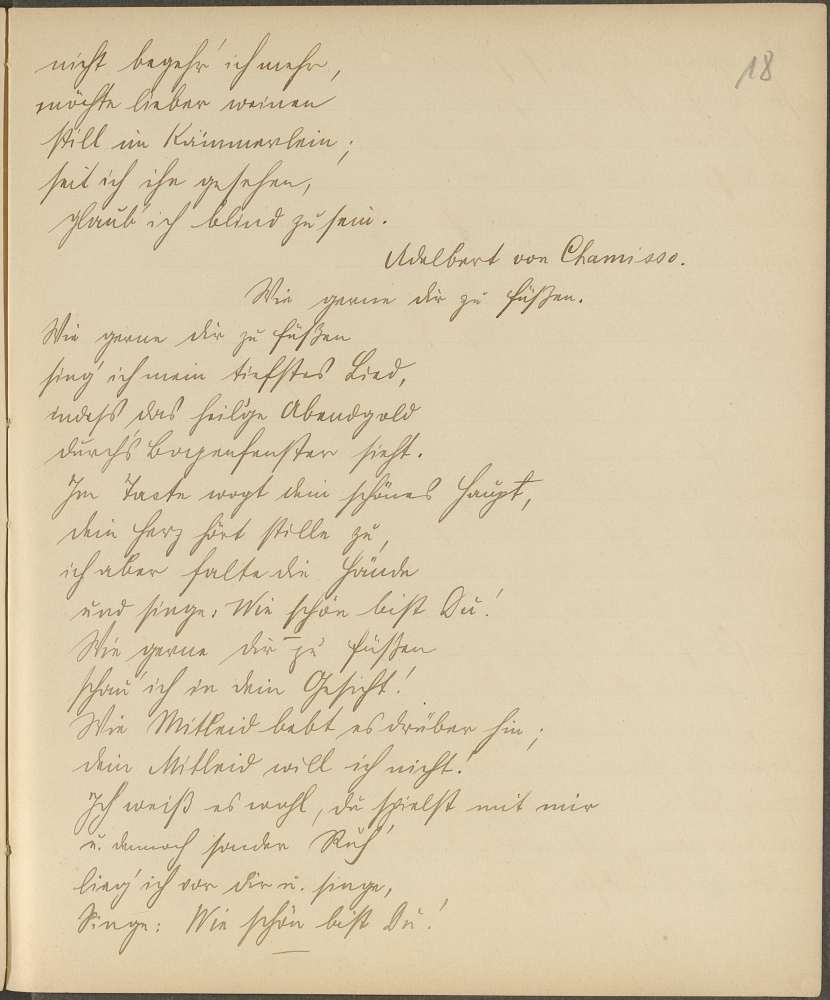 18
nicht begehr' ich mehr,
möchte lieber weinen
still im Kämmerlein;
seit ich ihn gesehen,
glaub' ich blind zu sein.
Adelbert von Chamisso.
Wie gerne dir zu Füßen.
Wie gerne dir zu Füßen
sing' ich mein tiefstes Lied,
indeß das heil'ge Abendgold
durch's Bogenfenster sieht.
Im Takte wogt dein schönes Haupt,
dein Herz hört stille zu,
ich aber falte die Hände
und singe: Wie schön bist Du!
Wie gerne dir zu Füßen
schau' ich in dein Gesicht!
Wie Mitleid bebt es drüber hin;
dein Mitleid will ich nicht!
Ich weiß es wohl, du spielst mit mir
u. dennoch sonder Ruh'
lieg' ich vor dir u. singe,
Singe: Wie schön bist Du!